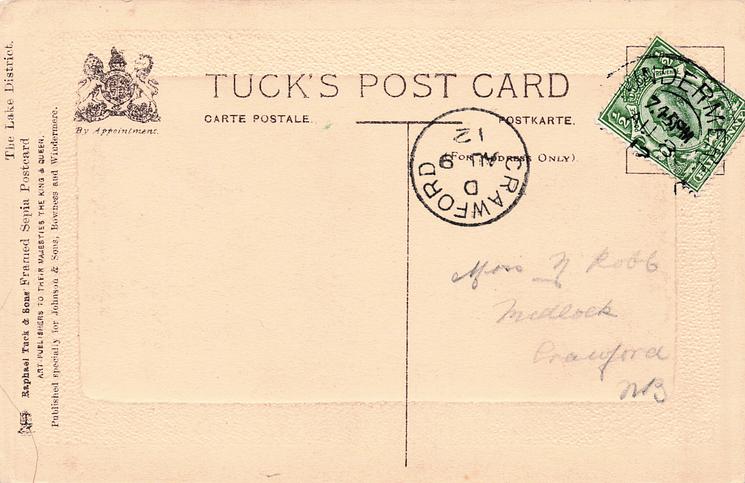 TUCK'S POST CARD
CARTE POSTALE.
POSTKARTE.
(For Address Only).
By Appointment.
The Lake District.
Raphael Tuck & Sons Framed Sepia Postcard
ART PUBLISHERS TO THEIR MAJESTIES THE KING & QUEEN.
Published specially for Johnson & Sons, Bowness and Windermere.
CRAWFORD
D
JU 9
12
Miss N Robb
Midlock
Crawford
NB